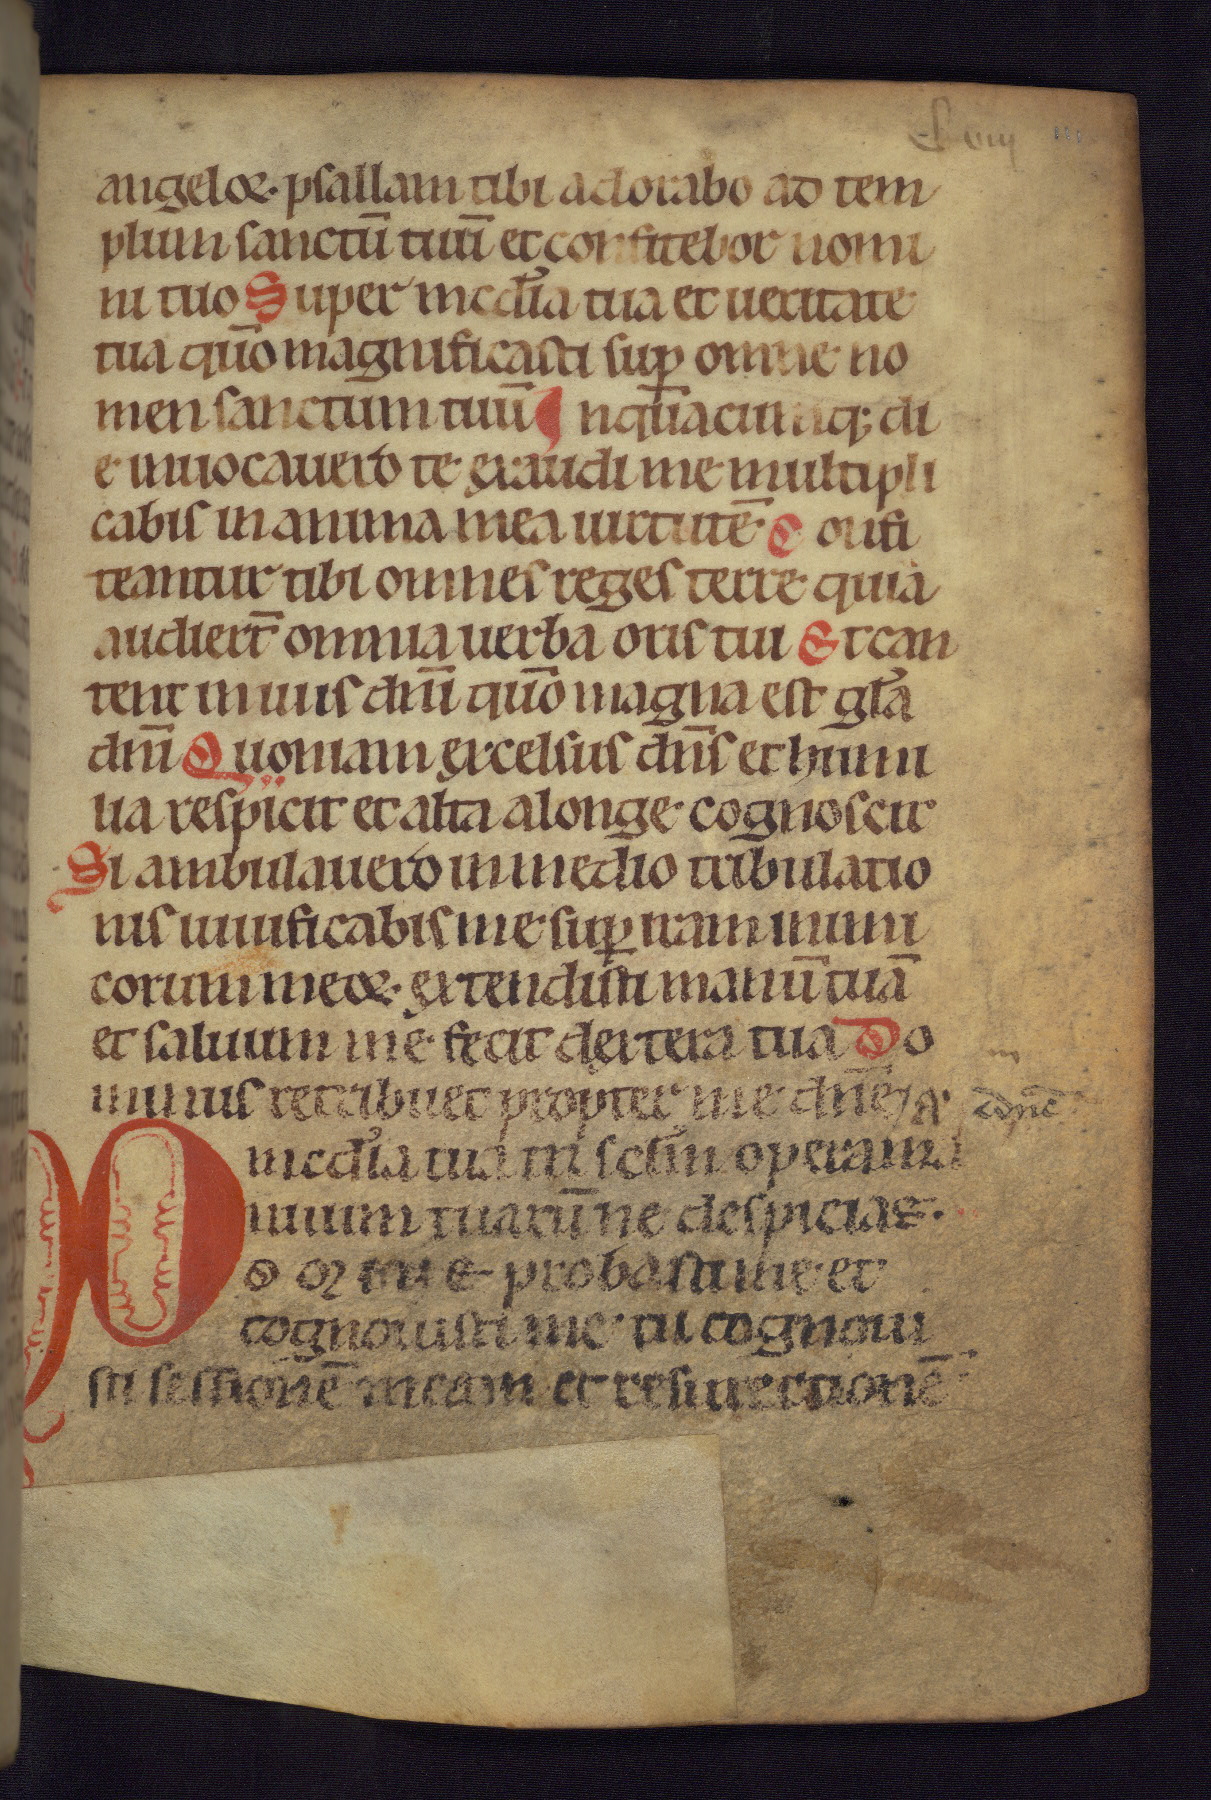 angeloꝝ· psallam tibi adorabo ad tem
plum sanctū tuū et confitebor nomi
ni tuo Super mcdĩa tua et ueritate
tua qūo magnificasti suꝑ omne no
men sanctum tuū In quacumq; di
e inuocauero te exaudi me multipli
cabis in anima mea uirtutē Confi
teantur tibi omnes reges terre quia
audierт̄ omnia uerba oris tui Et can
tent in uiis dn̄i qūo magna est gl̃a
dn̄i Quoniam excelsus dn̄s et humi
lia respicit et alta a longe cognoscit
Si ambulauero in medio tribulatio
nis uiuificabis me suꝑ iram inimi
corum meoꝝ· extendisti manū tuā
et saluum me fecit dextera tua Do
minus retribuet propter me dn̄e
mcdĩa tua in sclm opera ma
nuum tuarū ne despicias·
Domine probasti me et
cognouisti me tu cognoui
sti sessionē meam et resurrectionē